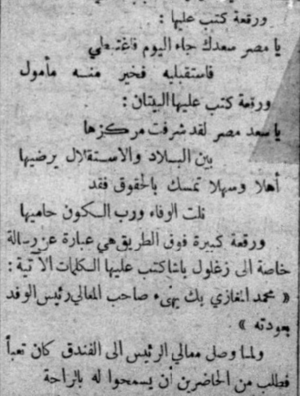 ورقعة كتب عليها :
يا مصر سعدك جاء اليوم فاغتبطي
فاستقبليه فخير منه مأمول
ورقعة كتب عليها البيتان :
يا سعد مصر لقد شرفت مركزها
بين البلاد والاستقلال يرضيها
أهلا وسهلا تمسك بالحقوق فقد
نلت الوفاء ورب الكون حاميها
ورقعة كبيرة فوق الطريق هي عبارة عن رسالة
خاصة الى زغلول باشا كتب عليها الكلمات الآتية :
« محمد المغازي بك يهنىء صاحب المعالي رئيس الوفد
بعودته »
ولما وصل معالي الرئيس الى الفندق كان تعباً
فطلب من الحاضرين أن يسمحوا له بالراحة